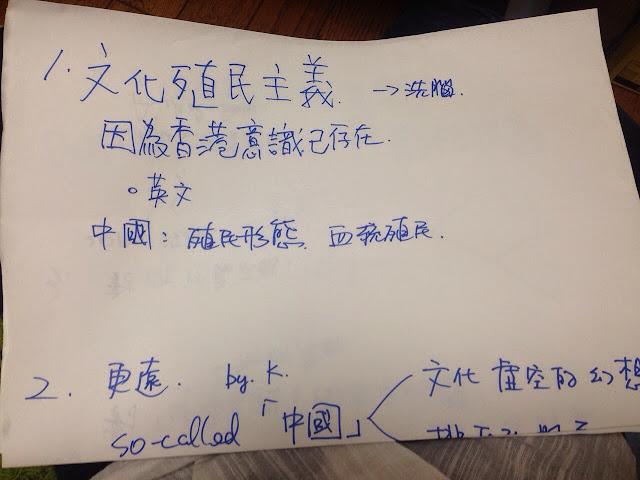 1. 文化殖民主義. → 洗腦.
因為香港意識已存在.
。英文
中國：殖民形態、血統殖民.
2. 更遠. by. K.
文化 虛空的幻想
so-called「中國」